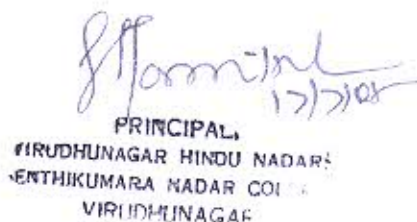 17/7/08
PRINCIPAL,
VIRUDHUNAGAR HINDU NADARS
SENTHIKUMARA NADAR COL
VIRUDHUNAGAR